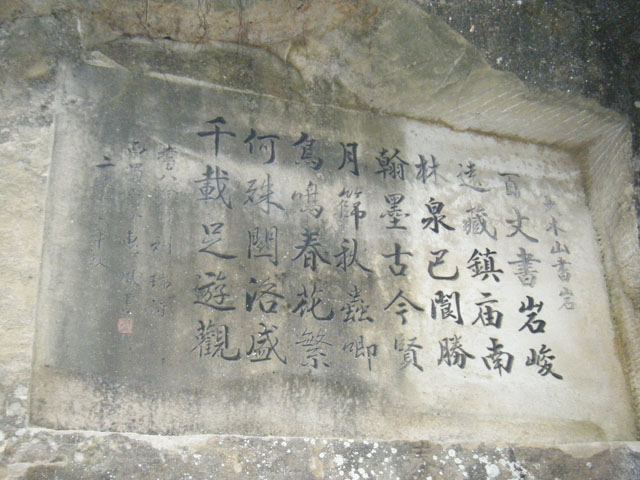 木山書岩
百丈書岩峻
藏鎮庙南
林泉巴閬勝
翰墨古今賢
月篩秋蟲唧
鳥鳴春花繁
何殊關洛盛
千載足遊觀